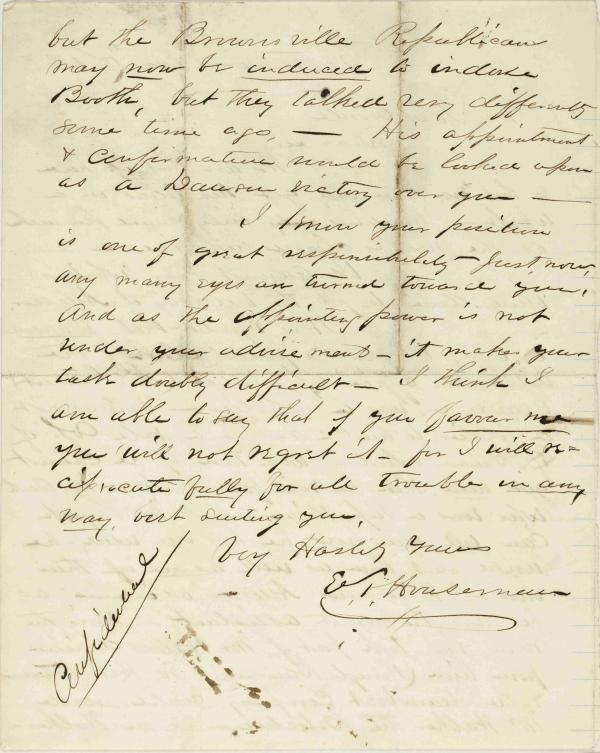 but the Brownsville Republican
may now be induced to indorse
Booth, but they talked very differently
some time ago, — His appointment
& confirmation would be looked upon
as a Dawson victory over you —
I know your position
is one of great responsibility — Just now,
any many eyes are turned toward you,
And as the appointing power is not
under your advisement — it makes your
task doubly difficult — I think I
am able to say that if you favour me
you will not regret it — for I will re=
ciprocate fully for all trouble in any
way, best suiting you,
Very Hastily Yours
Houseman
Confidential